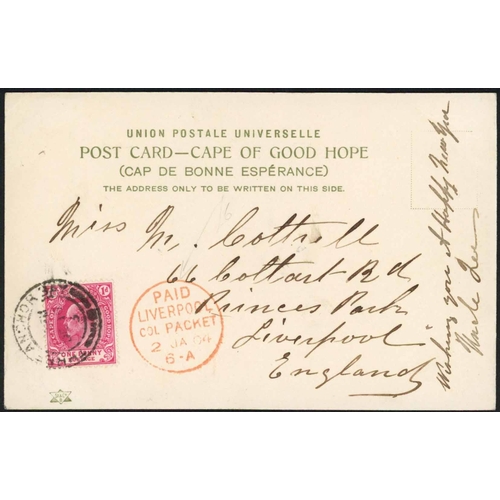 UNION POSTALE UNIVERSELLE
POST CARD—CAPE OF GOOD HOPE
(CAP DE BONNE ESPÉRANCE)
THE ADDRESS ONLY TO BE WRITTEN ON THIS SIDE.
Miss M. Cottrell
66 Cottart Rd
Princes Park
Liverpool
England
Wishing you A Happy New Year
Uncle
PAID
LIVERPOOL
COL PACKET
2 JA 04
6-A
1d
ONE PENNY